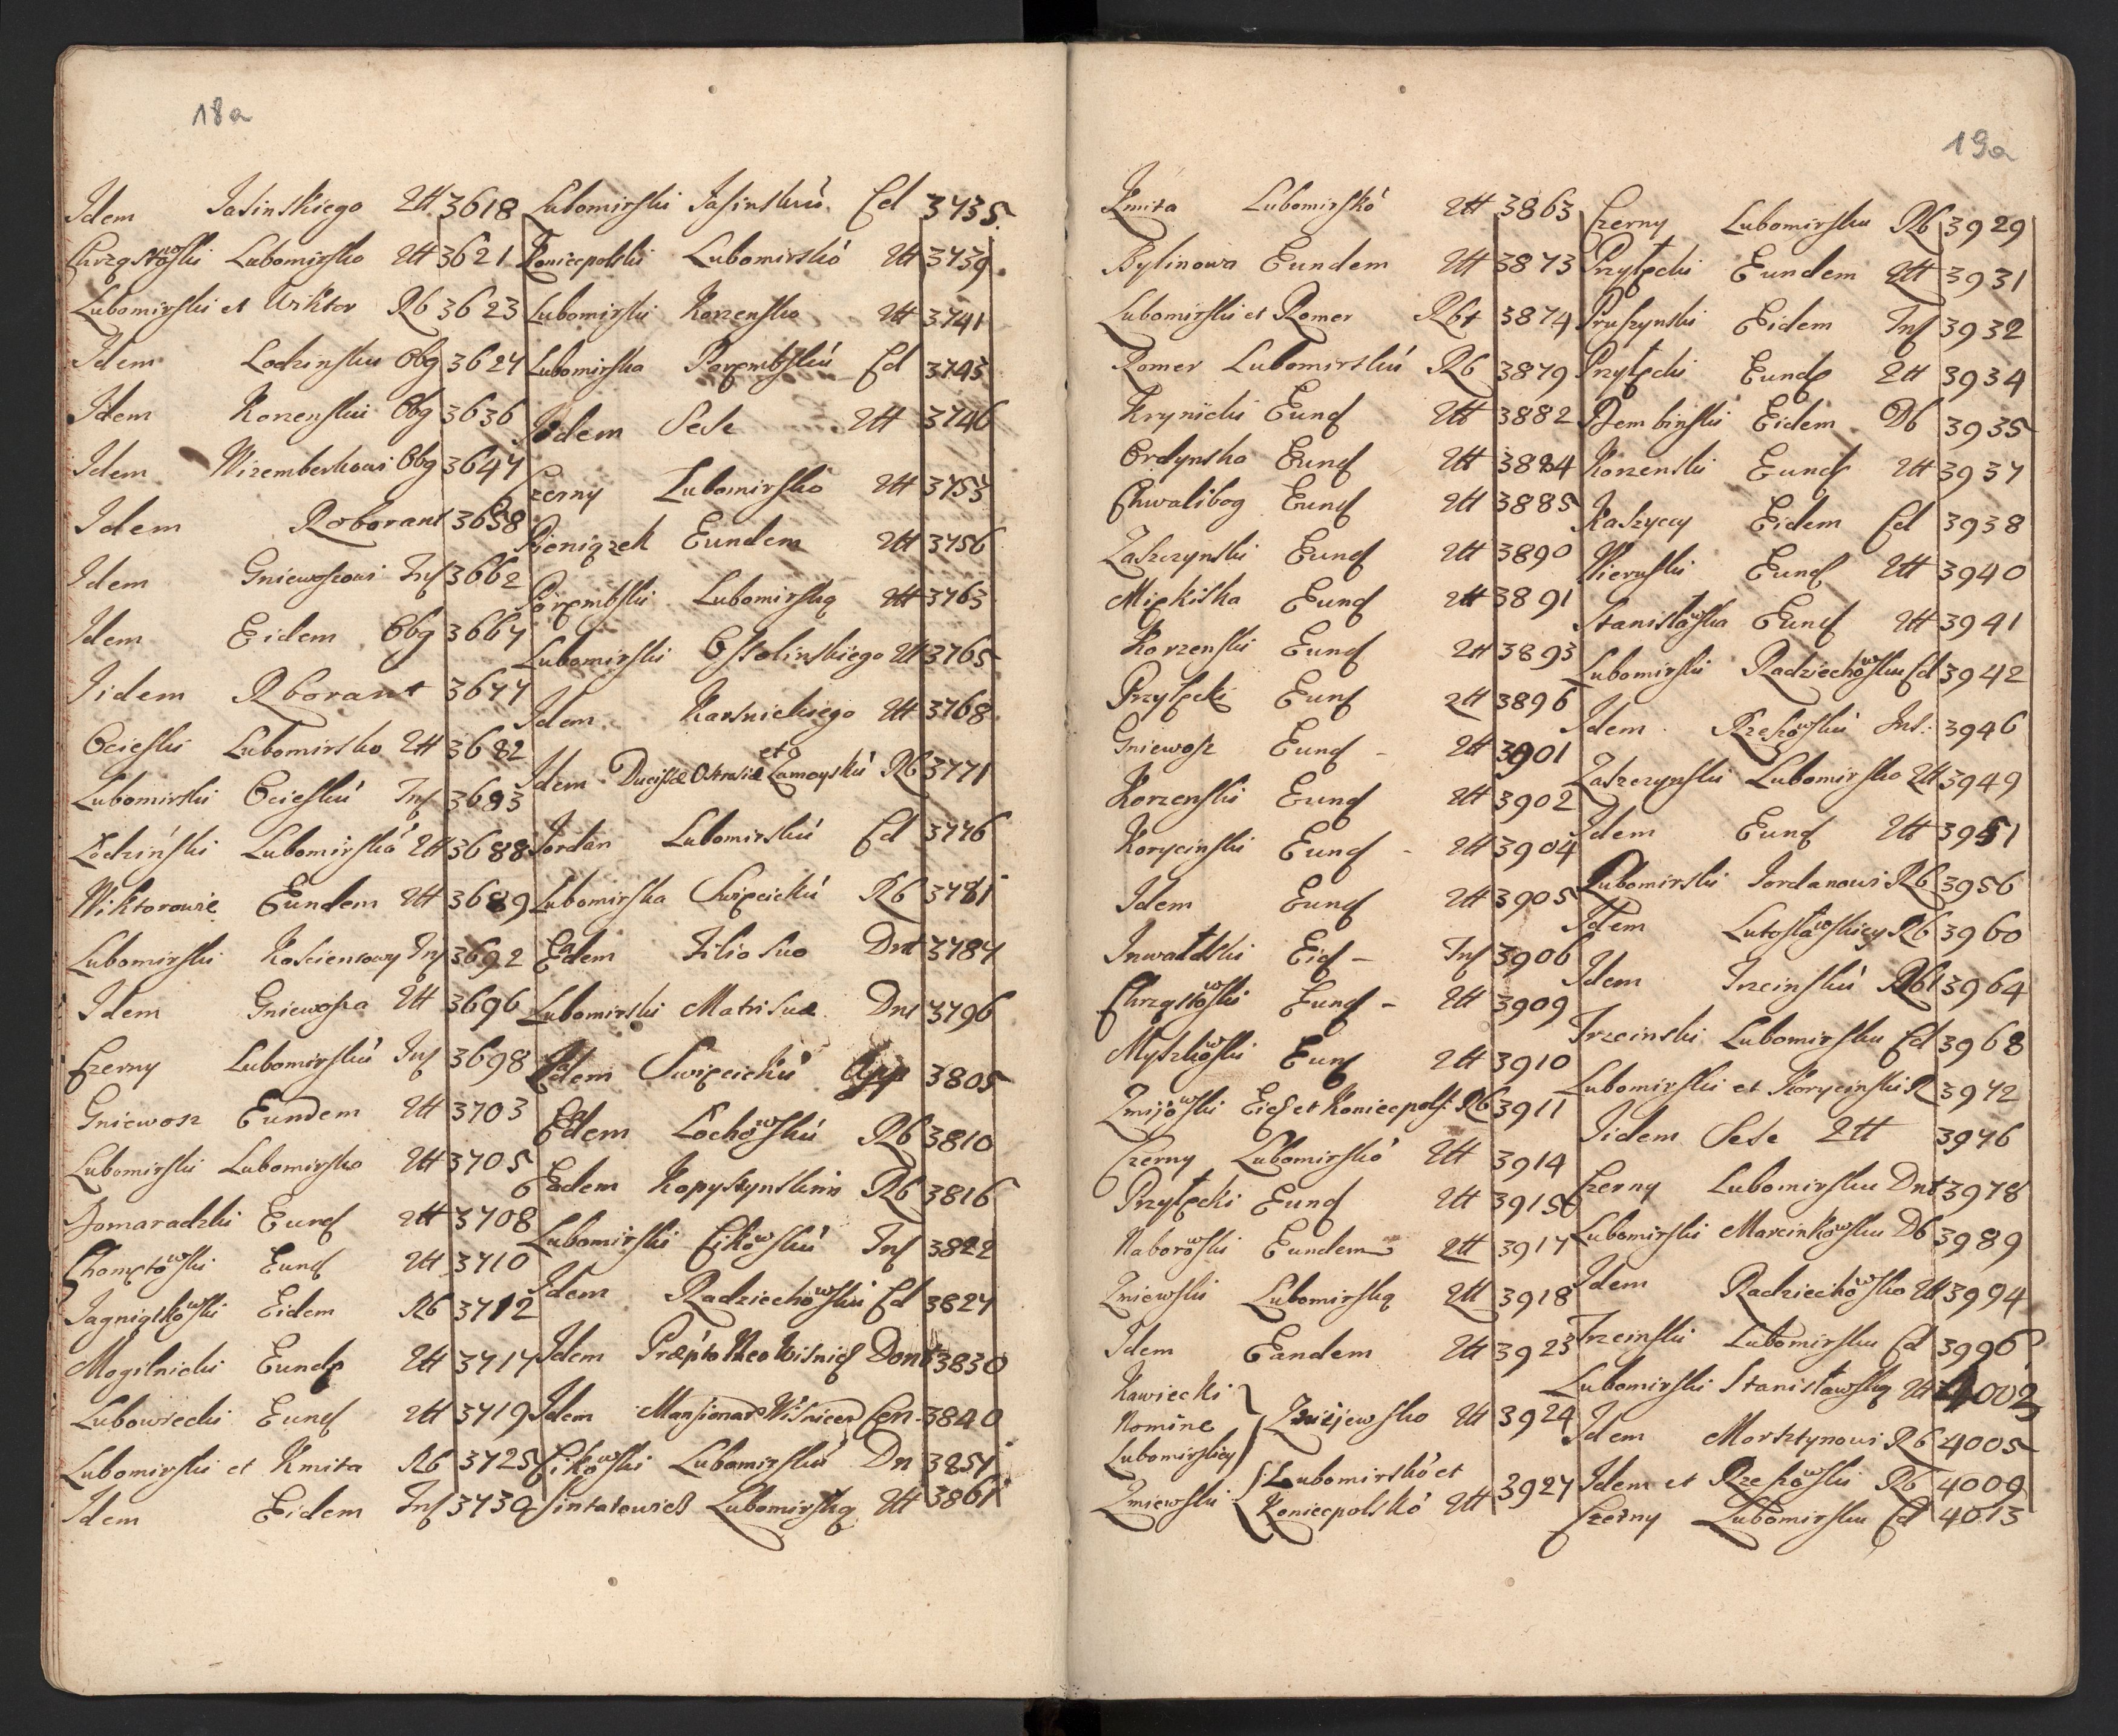 18a
Idem Jasinskiego Qtt 3618
Chrząstowski Lubomirsko Qtt 3621
Lubomirski et Wiktor Rb 3623
Idem Lodzinsku Obg 3627
Idem Korzenskii Obg 3636
Idem Wiremberkowi Obg 3647
Idem Roborant 3658
Idem Gniewoszowi Ins 3662
Idem Eidem Obg 3667
Iidem Rborant 3677
Ocieski Lubomirsko Qtt 3682
Lubomirski Ocieskiú Ins 3683
Lodzinski Lubomirskó Qtt 3688
Wiktorowie Eundem Qtt 3689
Lubomirski Koscienowy Ins 3692
Idem Gniewosza Qtt 3696
Czerny Lubomirskiú Ins 3698
Gniewosz Eundem Qtt 3703
Lubomirski Lubomirsko Qtt 3705
Domaradzki Eund Qtt 3708
Chomętowski Eund Qtt 3710
Jagniątkowski Eidem Rb 3712
Mogilnicki Eunde Qtt 3717
Lubowiecki Eund Qtt 3719
Lubomirski et Kmita Rb 3725
Idem Eidem Ins 3730
Lubomirski Jasinskiú Cd 3735
Koniecpolski Lubomirskó Qtt 3739
Lubomirski Korzensko Qtt 3741
Lubomirska Porembskiú Cd 3743
Iidem Sese Qtt 3746
Czerny Lubomirsko Qtt 3753
Pieniązek Eundem Qtt 3756
Porembski Lubomirską Qtt 3763
Lubomirski Ossolinskiego Qtt 3765
Idem Karsnickiego Qtt 3768
Idem Ducissæ Ostrosiæ et Zamoyskú Rb 3771
Jordan Lubomirskiú Cd 3776
Lubomirska Swięcickú Rb 3781
Eadem Filio suo Dnt 3787
Lubomirski Matri suæ Dnt 3796
Eadem Swięcickú App 3805
Eadem Lochowskiú Rb 3810
Eadem Kopystynskim Rb 3816
Lubomirski Cikowskiú Ins 3822
Idem Radziechowskii Cd 3827
Idem Præpto Neo Wisnics Dont 3830
Idem Mansionar Wisnicen Cen 3840
Cikowski Lubomirskiú Dn 3857
Sintatowicz Lubomirską Qtt 3861
19a
Kmita Lubomirskó Qtt 3863
Bylinowa Eundem Qtt 3873
Lubomirski et Romer Rbt 3874
Romer Lubomirskú Rb 3879
Krynicki Eund Qtt 3882
Ordynsko Eund Qtt 3884
Chwalibog Eund Qtt 3885
Zaszczynski Eund Qtt 3890
Miękiska Eund Qtt 3891
Korzenski Eund Qtt 3893
Przyłęcki Eund Qtt 3896
Gniewosz Eund - Qtt 3901
Korzenski Eund Qtt 3902
Korycinski Eund - Qtt 3904
Idem Eund Qtt 3905
Inwałdski Eid - Ins 3906
Chrząstowski Eund - Qtt 3909
Myszkowski Eund Qtt 3910
Zmijowski Eid et Koniecpols: Rb 3911
Czerny Lubomirskó Qtt 3914
Przyłęcki Eund Qtt 3915
Naborowski Eundem Qtt 3917
Zniewski Lubomirską Qtt 3918
Idem Eandem Qtt 3923
Kawiecki
Nomine Zniejewsko Qtt 3924
Lubomirskiey
Zmiewski Lubomirskó et
Koniecpolskó Qtt 3927
Czerny Lubomirsku Rb 3929
Przyłęcki Eundem Qtt 3931
Pruszynski Eidem Ins 3932
Przyłęcki Eunde Qtt 3934
Dembinski Eidem Db 3935
Korzenski Eund Qtt 3937
Kaszyccy Eidem Cd 3938
Wieruski Eund Qtt 3940
Stanisławska Eund Qtt 3941
Lubomirski Radziechowsku Cd 3942
Idem Rzepowskiú Ins: 3946
Zaszczynski Lubomirsko Qtt 3949
Idem Eund Qtt 3951
Lubomirski Jordanowi Rb 3956
Idem Lutosławskiey Rb 3960
Idem Trzcinskiú Rbt 3964
Trzcinski Lubomirsku Cd 3968
Lubomirski et Korycinski R 3972
Iidem Sese Qtt 3976
Czerny Lubomirsku Dnt 3978
Lubomirski Marcinkowsku Db 3989
Idem Radziechowsko Qtt 3994
Trzcinski Lubomirsku Cd 3996
Lubomirski Stanisławską Qtt 4002
Idem Morsztynowi Rb 4005
Idem et Rzepowski Rb 4009
Czerny Lubomirsku Cd 4013